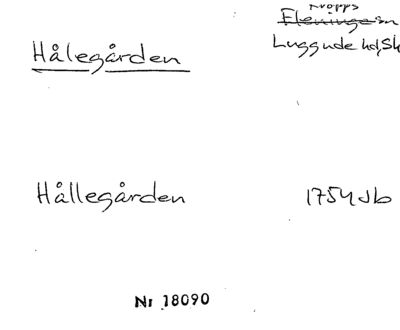 Kropps
Hålegården
Fleninge sn
Luggude hd, Sk
Hållegården 1754 Jb
Nr 18090